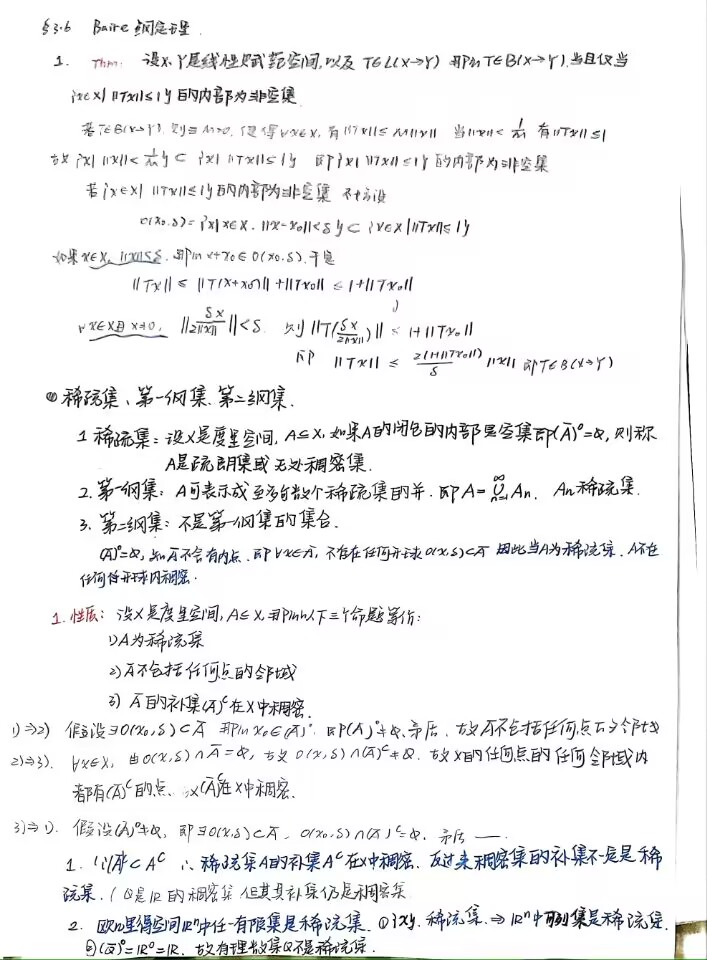 §3.6 Baire 纲定理.
1. Thm: 设X、Y是线性赋范空间,以及 T∈L(X→Y) 那么T∈B(X→Y),当且仅当
{x∈X| ||Tx||≤1}的内部为非空集
若T∈B(X→Y), 则∃M>0, 使得∀x∈X, 有||Tx||≤M||x|| 当||x||<1/M 有||Tx||≤1
故{x| ||x||<1/M}⊂{x| ||Tx||≤1} 即{x| ||Tx||≤1}的内部为非空集
若{x∈X| ||Tx||≤1}的内部为非空集 不妨设
O(x₀,δ)={x|x∈X, ||x-x₀||<δ}⊂{x∈X| ||Tx||≤1}
如果x∈X, ||x||≤δ, 那么x+x₀∈O(x₀,δ),于是
||Tx||≤||T(x+x₀)||+||Tx₀||≤1+||Tx₀||
∀x∈X且x≠0, ||δx/2||x|| ||<δ, 则||T(δx/2||x||)||≤1+||Tx₀||
即 ||Tx||≤2(1+||Tx₀||)/δ ||x|| 即T∈B(X→Y)
② 稀疏集、第一纲集、第二纲集.
1 稀疏集: 设X是度量空间, A⊆X,如果A的闭包的内部是空集即(Ā)°=∅, 则称
A是疏朗集或无处稠密集.
2. 第一纲集: A可表示成至多可数个稀疏集的并, 即A=⋃ₙ₌₁^∞ Aₙ, Aₙ稀疏集.
3. 第二纲集: 不是第一纲集的集合.
(Ā)°=∅, 知Ā不含有内点, 即∀x∈Ā, 不存在任何开球O(x,δ)⊂Ā 因此当A为稀疏集, A不在
任何开球内稠密.
1. 性质: 设X是度量空间, A∈X, 那么以下三个命题等价:
1) A为稀疏集
2) Ā不包括任何点的邻域
3) Ā的补集(Ā)ᶜ在X中稠密.
1)⇒2) 假设∃O(x₀,δ)⊂Ā 那么x₀∈(Ā)°, 即(Ā)°≠∅, 矛盾, 故Ā不包括任何点的邻域
2)⇒3). ∀x∈X, 由O(x,δ)∩Ā=∅, 故O(x,δ)∩(Ā)ᶜ≠∅, 故X的任何点的任何邻域内
都有(Ā)ᶜ的点, 故(Ā)ᶜ在X中稠密.
3)⇒1). 假设(Ā)°≠∅, 即∃O(x,δ)⊂Ā, O(x₀,δ)∩(Ā)ᶜ=∅, 矛盾 ——.
1. ∵(Ā)ᶜ⊂Aᶜ ∴稀疏集A的补集Aᶜ在X中稠密. 反过来稠密集的补集不一定是稀
疏集. (Q是R的稠密集 但其补集仍是稠密集
2. 欧几里得空间Rⁿ中任一有限集是稀疏集. ①{x}, 稀疏集. ⇒Rⁿ中可列集是稀疏集.
②(Q̄)°=R°=R, 故有理数集Q不是稀疏集.